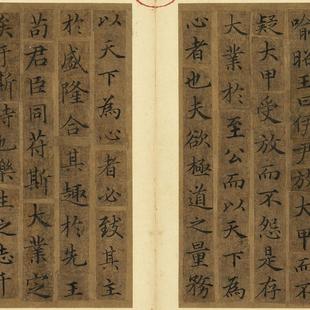 喻昭王曰伊尹放大甲而不
疑大甲受放而不怨是存
大業於至公而以天下為
心者也夫欲極道之量務
以天下為心者必致其主
於盛隆合其趣於先王
苟君臣同苻斯大業定
矣于斯時也樂生之志千